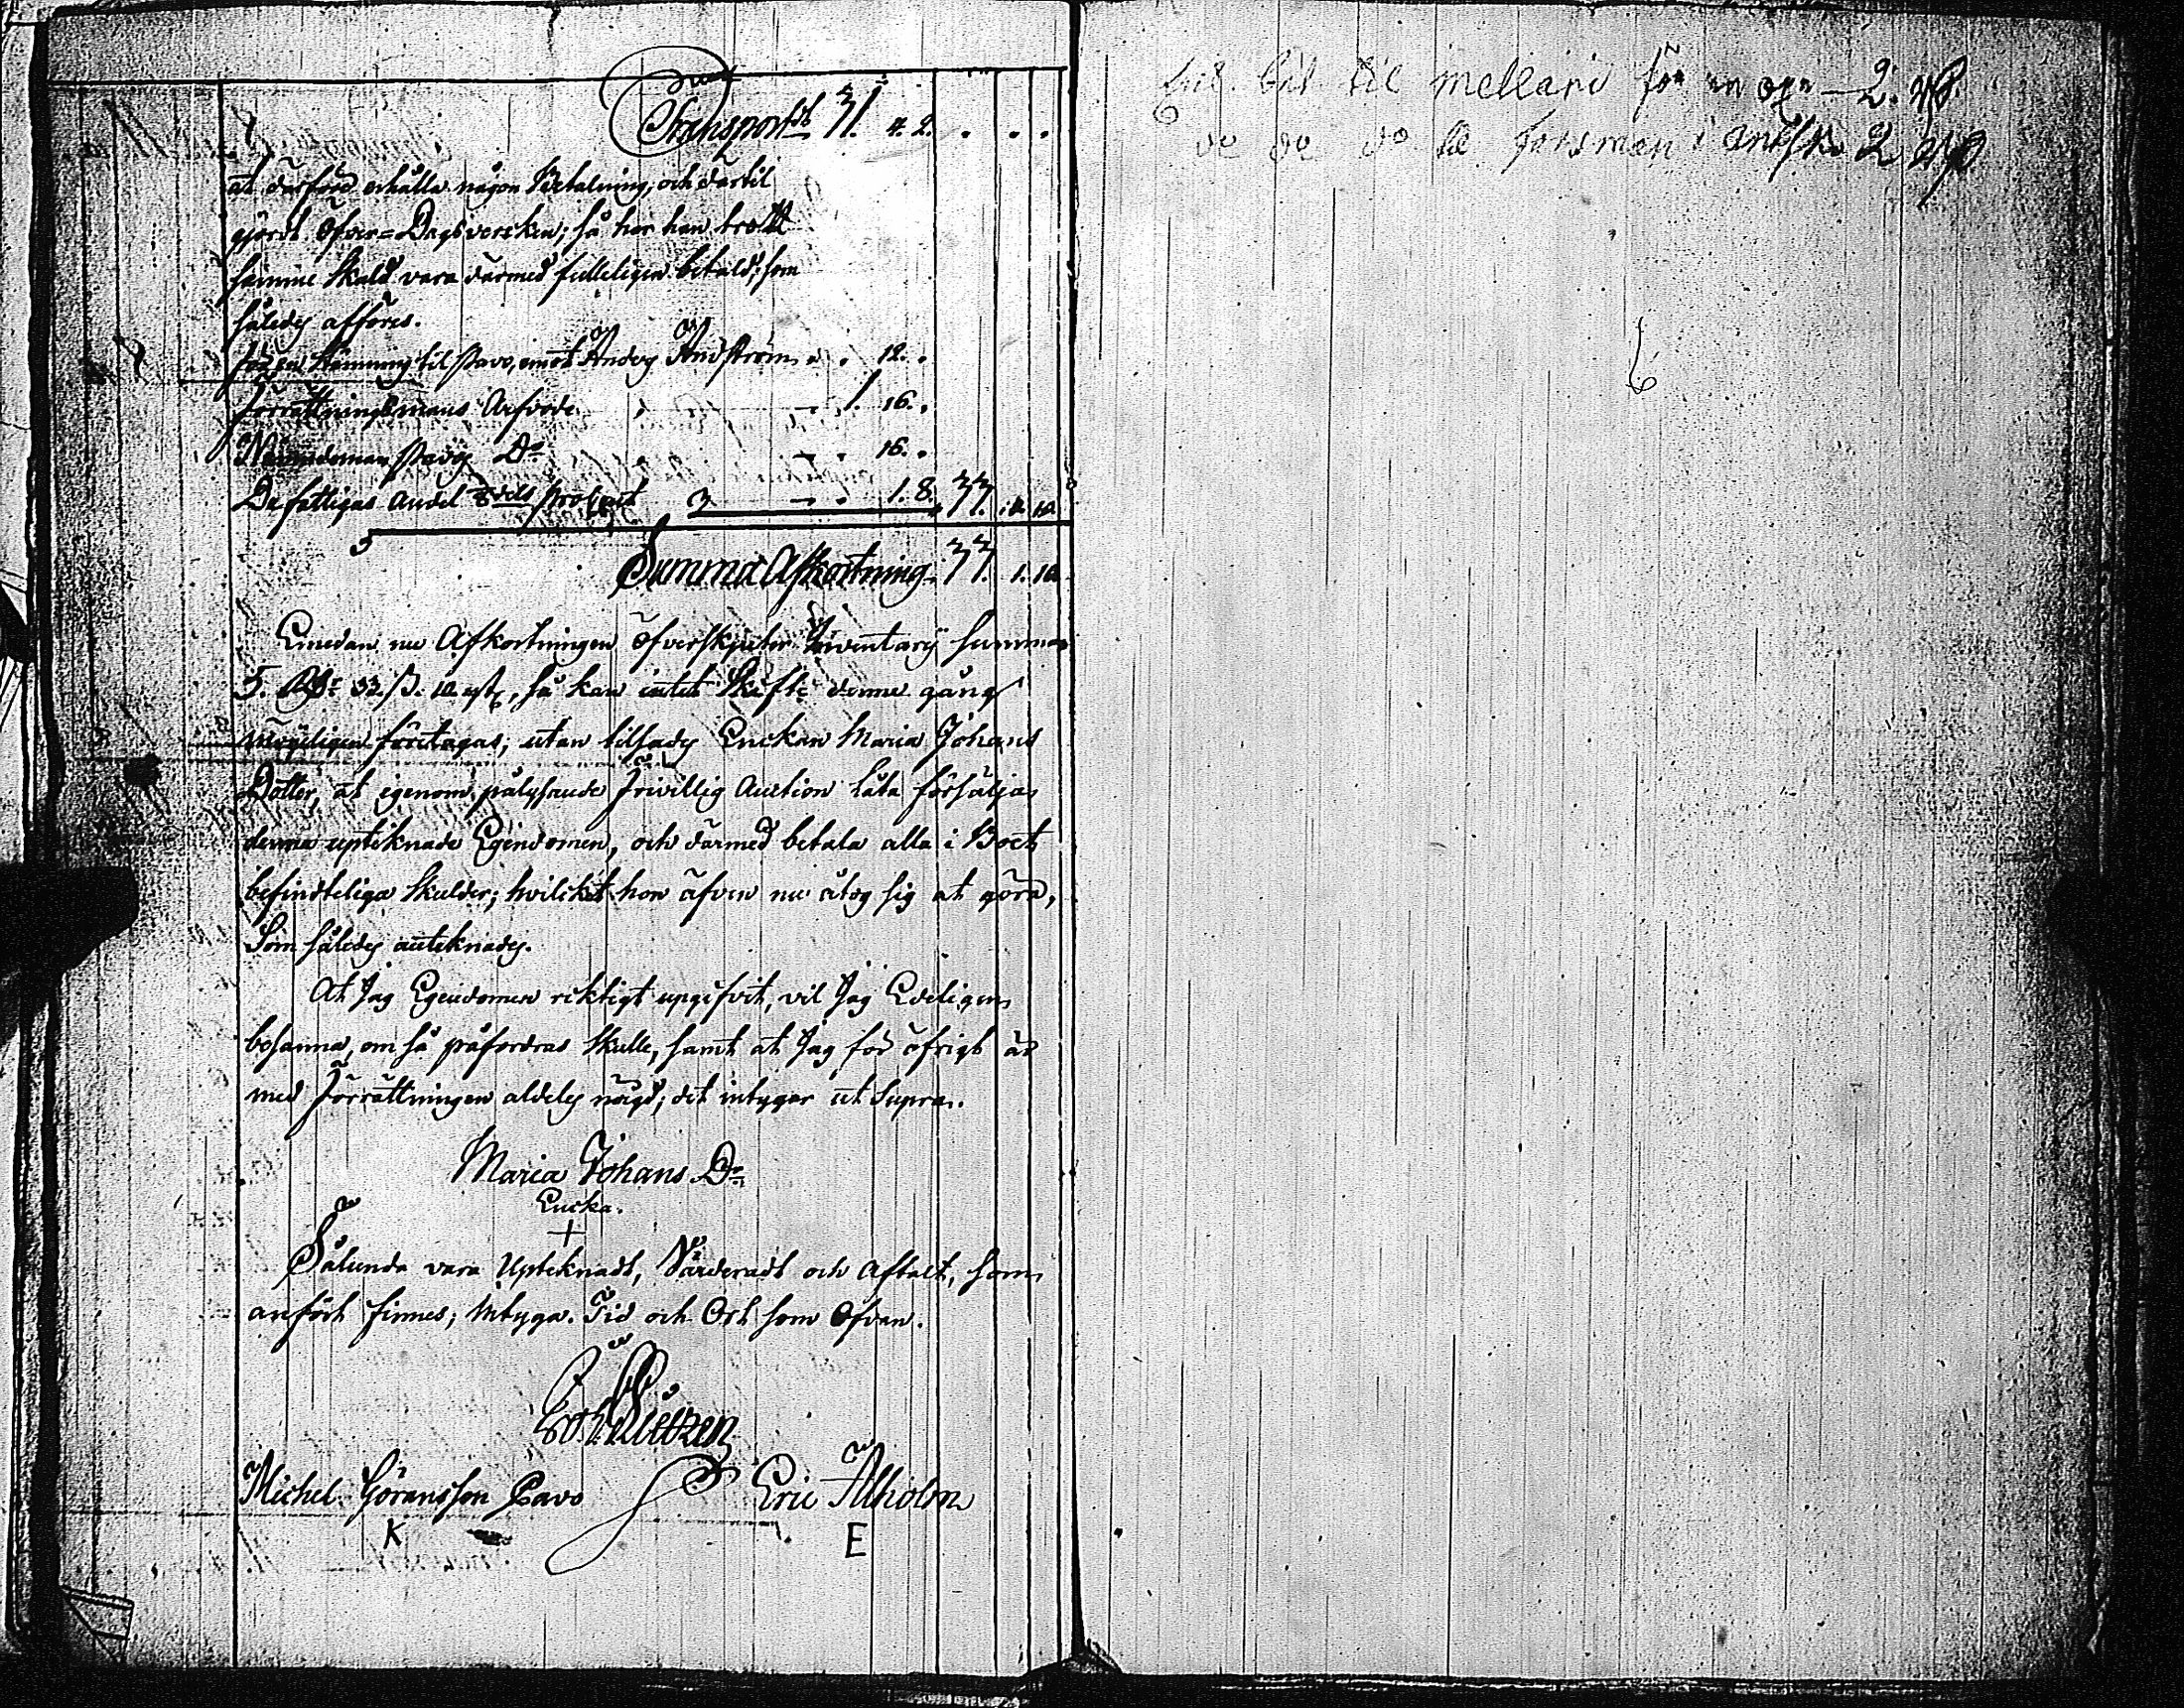 Transport 31. 4. 2.
at därföre erhålla någon Betalning, och därtil
gjordt Öfver=Dagsvercken; så har han trott
samme skuld vara därmed fulleligen betald; som
således affördes.
för en Stämning til Pavo, emot Anders Åhdström 12.
Förrättningsmans Arfvode 1. 16.
Nämndeman Pavos Do 16.
De fattigas andel 1/8dels procent 1. 8. 33. 1. 10.
Summa Afkortning 33. 1. 10.
Emedan nu Afkortningen öfverskjuter Inventarij Summan
5. Rdr 33. ß. 10. rst, så kan intet Skifte denne gång
möijeligen företagas; utan tilsades Enckan Maria Johans
Dotter, at igenom pålysande Frivillig Auction låta försäljas
denna uptecknade Egendomen, och därmed betala alla i Boet
befindteliga Skulder; hvilcket hon äfven nu åtog sig at göra,
Som således antecknades.
At Jag Egendomen ricktigt upgifvit, vil Jag Edeligen
besanna, om så påfordras skulle, samt at Jag för öfrigt är
med Förrättningen aldeles nögd; det intygar ut Supra.
Maria Johans Dr
Encka.
+
Sålunda vara Uptecknadt, Värderadt och Aftalt, som
anfördt finnes; Intyga. Tid och Ort som Ofvan.
Michel Göransson Pavo Eric Ahlholm
K E
til mellari för en 2.
do do do Forsman 2